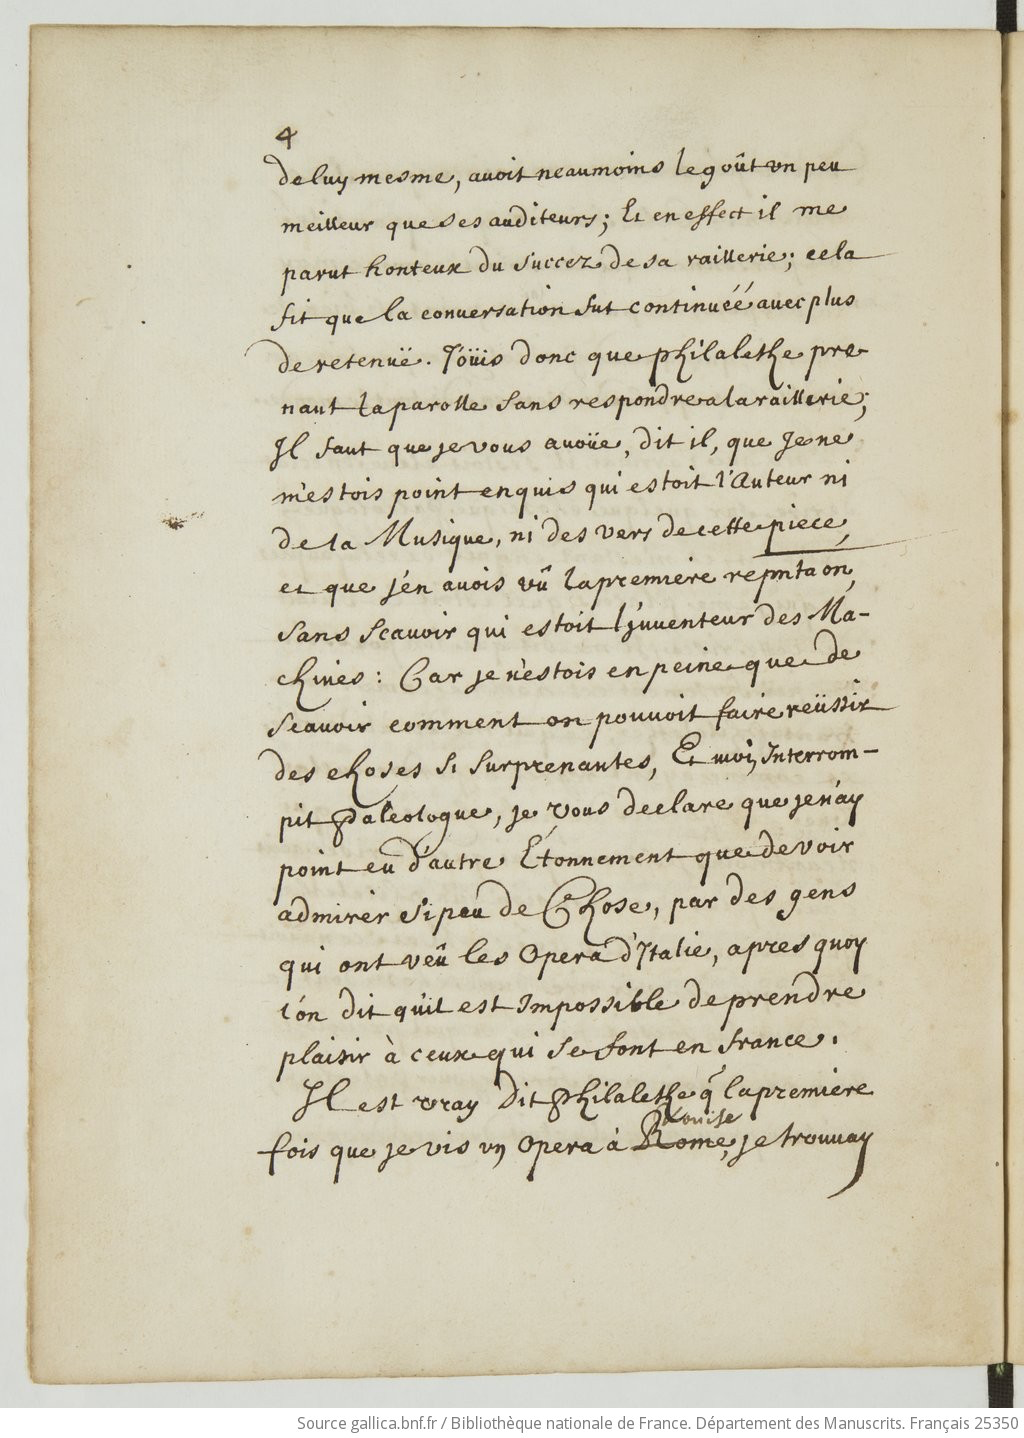 4
de luy mesme, avoit neaumoins le goût vn peu
meilleur que ses auditeurs; Et en effect il me
parut honteux du succez de sa raillerie; cela
fit que la conuersation fut continuéé auec plus
de retenuë. J'oüis donc que philalethe pre-
naut la parolle sans respondre a la raillerie;
Il faut que je vous avoüe, dit il, que Je ne
m'estois point enquis qui estoit l'Auteur ni
de la Musique, ni des vers de cette piece,
et que j'en auois vû la premiere repnta͠on,
sans scauoir qui estoit l'juuenteur des Ma-
chines : Car je n'estois en peine que de
scauoir comment on pouuoit faire reüssir
des choses si surprenantes, Et moy, Interrom-
pit Paleologue, je vous declare que je n'ay
point eu d'autre Étonnement que de voir
admirer si peu de Chose, par des gens
qui ont veû les Opera d'Italie, apres quoy
l'on dit qu'il est Impossible de prendre
plaisir à ceux qui se font en france.
Il est vray dit Philalethe q̃ la premiere
fois que je vis vn Opera à Rome, je trouuay
Source gallica.bnf.fr / Bibliothèque nationale de France. Département des Manuscrits. Français 25350